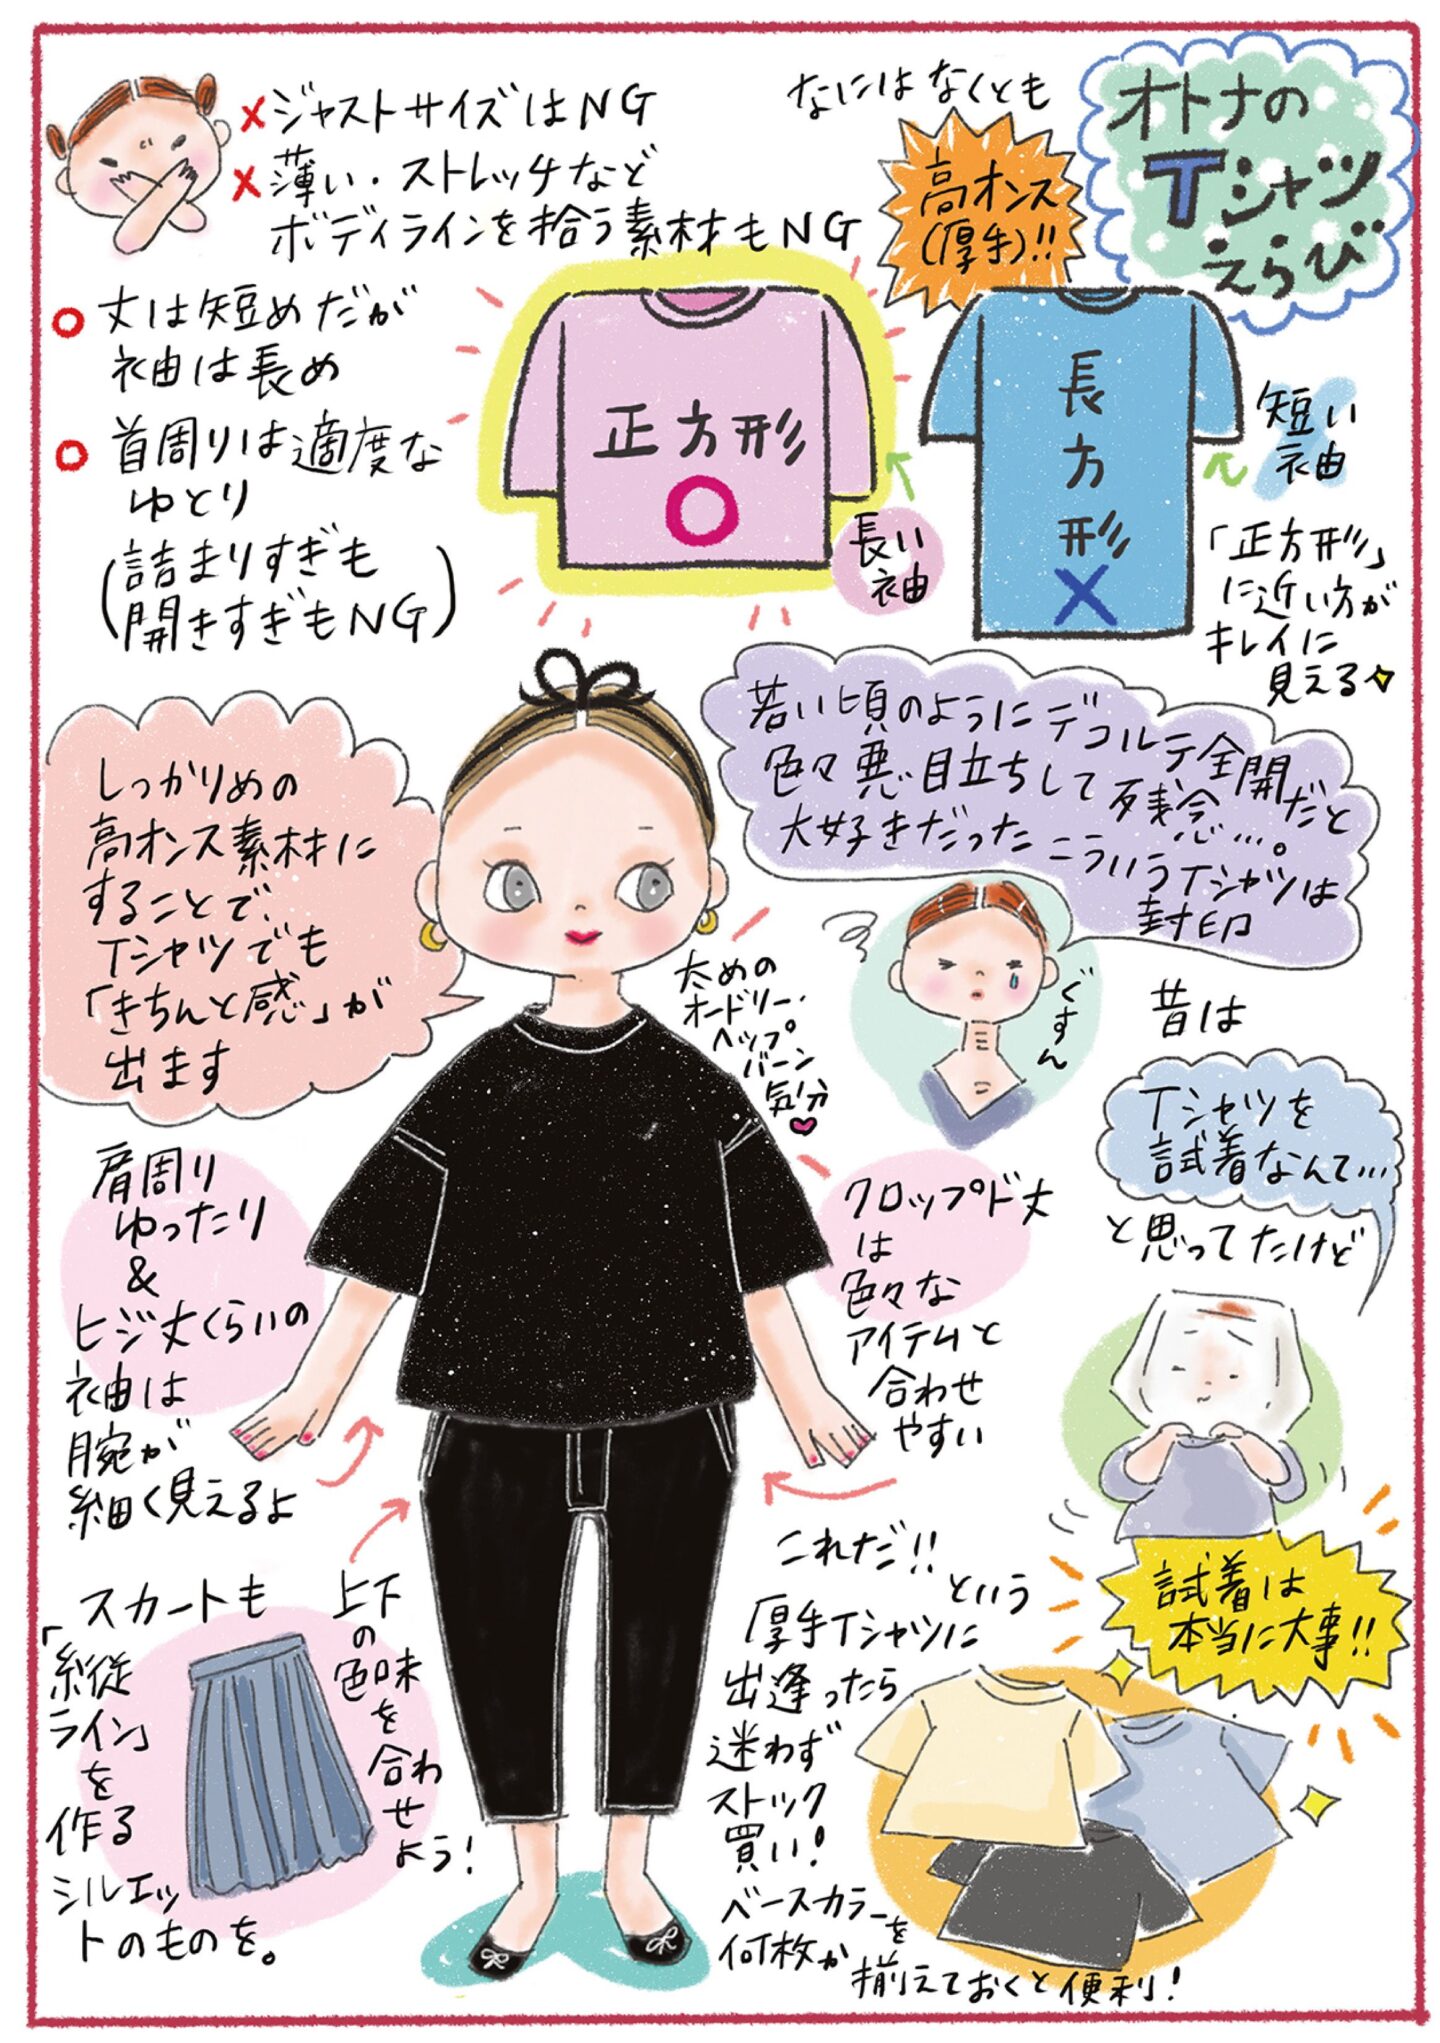 オトナの
Tシャツ
えらび
なにはなくとも
高オンス
(厚手)!!
×ジャストサイズはNG
×薄い・ストレッチなど
ボディラインを拾う素材もNG
○丈は短めだが
袖は長め
○首周りは適度な
ゆとり
(詰まりすぎも
開きすぎもNG)
正方形
○
長い
袖
長方形
×
短い
袖
「正方形」
に近い方が
キレイに
見える
若い頃のようにデコルテ全開だと
色々悪目立ちして残念…。
大好きだったこういうTシャツは
封印
ぐすん
しっかりめの
高オンス素材に
することで、
Tシャツでも
「きちんと感」が
出ます
太めの
オードリー・
ヘップ
バーン
気分
昔は
Tシャツを
試着なんて…
と思ってたけど
試着は
本当に大事!!
肩周り
ゆったり
&
ヒジ丈くらいの
袖は
腕が
細く見えるよ
クロップド丈
は
色々な
アイテムと
合わせ
やすい
スカートも
「縦
ライン」
を
作る
シルエッ
トのものを。
上下
の
色味
を
合わ
せ
よう!
これだ!!
という
厚手Tシャツに
出逢ったら
迷わず
ストック
買い!
ベースカラーを
何枚か
揃えておくと便利!